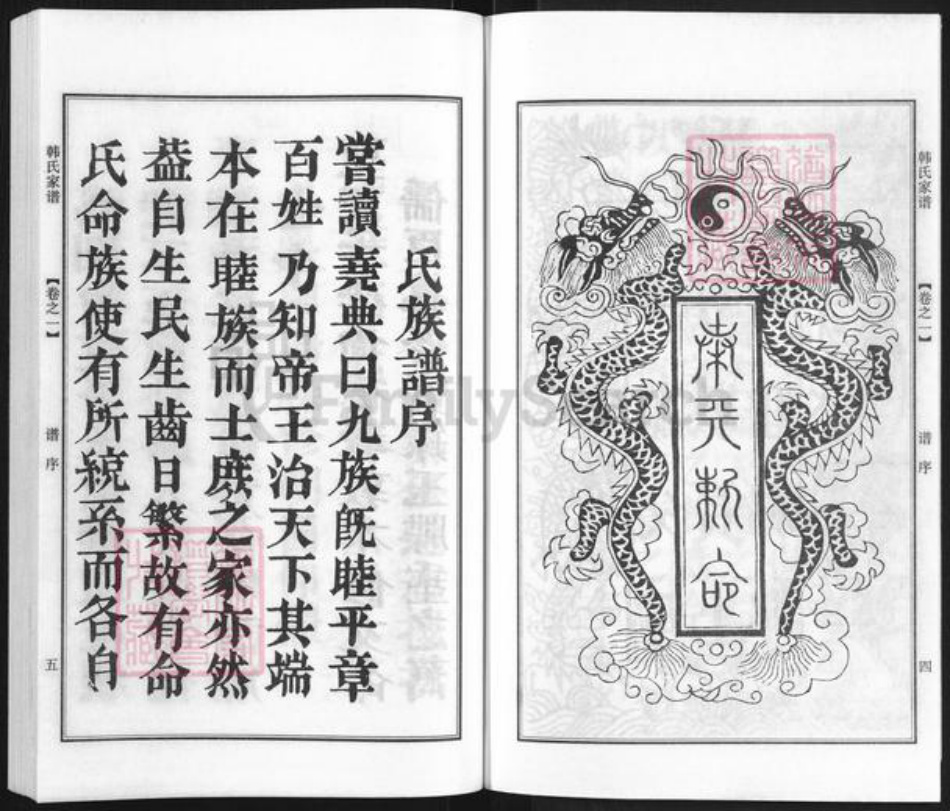 韩氏家谱
【卷之一】
谱序
四
奉天敕命
氏族譜序
嘗讀堯典曰九族既睦平章
百姓乃知帝王治天下其端
本在睦族而士庶之家亦然
葢自生民生齒日繁故有命
氏命族使有所統系而各自
韩氏家谱
【卷之一】
谱序
五
FamilySearch